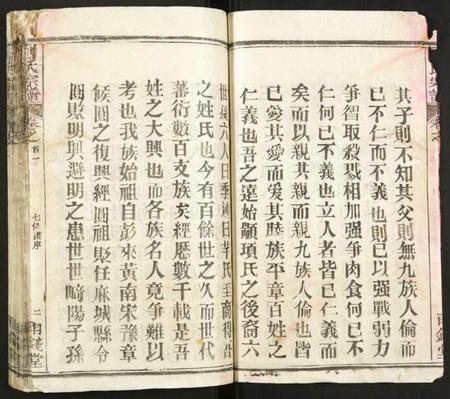 其子則不知其父則無九族人倫而
已不仁而不義也則已以强戰弱力
爭智取殺戮相加强爭肉食何已不
仁何已不義也立人者皆已仁義而
矣而以親其親而親九族人倫也皆
已愛其愛而愛其睦族平章百姓之
仁義也吾之遠始顓頊氏之後裔六
世孫六人曰季連曰芊氏至商得吾
之姓氏也今有百餘世之久而世代
蕃衍數百支族矣經歷數千載是吾
姓之大興也而各族名人竟爭難以
考也我族始祖自彭來黃南宋豫章
候圓之復興經圓祖貶任麻城縣令
因敗明興避明之患世世崎陽子孫
氏宗譜
卷之首一
七修譜序
二